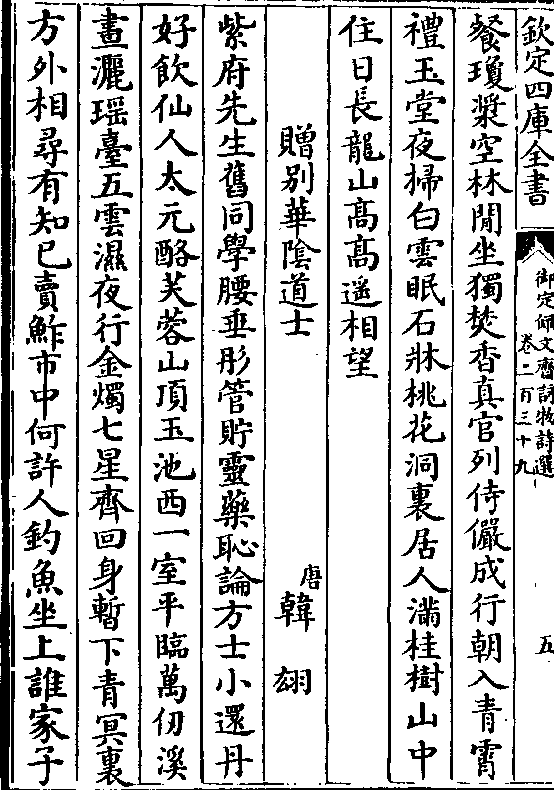 欽定四庫全書
御定佩文齋詠物詩選
卷二百三十九
五
餐瓊漿空林閒坐獨焚香真官列侍儼成行朝入青霄
禮玉堂夜掃白雲眠石牀桃花洞裏居人滿桂樹山中
住日長龍山髙髙遥相望
贈别華陰道士
唐韓翃
紫府先生舊同學腰垂彤管貯靈藥恥論方士小還丹
好飲仙人太元酪芙蓉山頂玉池西一室平臨萬仞溪
晝灑瑶臺五雲濕夜行金燭七星齊回身暫下青冥裏
方外相尋有知已賣鮓市中何許人釣魚坐上誰家子